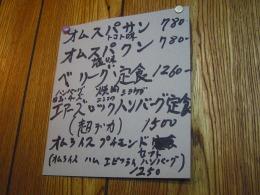 オムスパサン 780
トマト味
オムスパクン 780-
塩味
ベリーグ定食 1260-
ハンバーグ 焼肉
エアーズロックハンバーグ定食
(超デカ) 1500
オムライスプルモンド
セット
(オムライス ハム エビフライ ハンバーグ)
1250